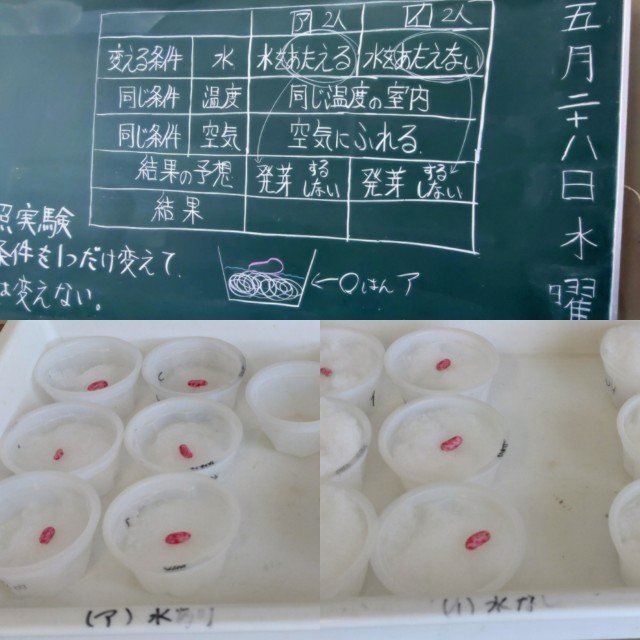 ア 2人 イ 2人
変える条件 水 水をあたえる 水をあたえない
同じ条件 温度 同じ温度の室内
同じ条件 空気 空気にふれる。
結果の予想 発芽 する しない 発芽 する しない
結果
照実験
条件を1つだけ変えて、
は変えない。
○はんア
五月二十八日水曜
(ア)水あり
(イ)水なし